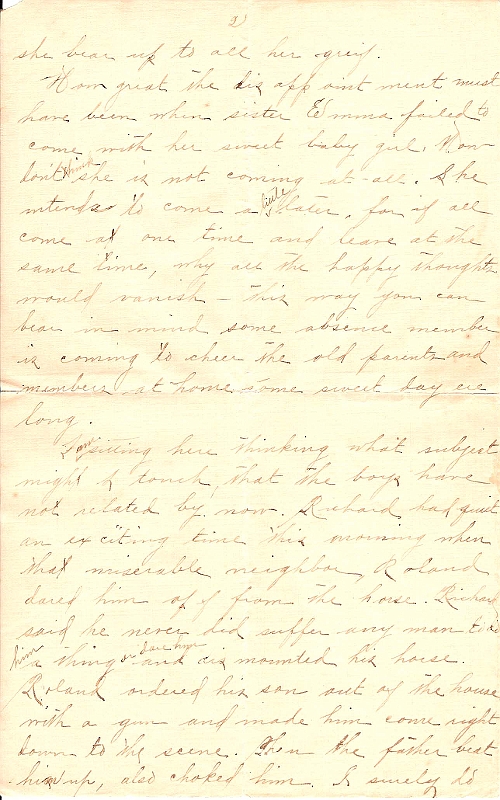 3)
she bear up to all her greif.
How great the dis app oint ment must
have been when sister Emma failed to
come with her sweet baby girl. Now
don't think she is not coming at-all. She
intends to come a little later, for if all
come at one time and leave at the
same time, why all the happy thoughts
would vanish - this way you can
bear in mind some absence member
is coming to cheer the old parents and
members at home some sweet day ere
long.
I am sitting here thinking what subject
might I touch, that the boys have
not related by now. Richard had quit
an ex citing time this morning when
that miserable neighbor, Roland
dared him off from the horse. Richard
said he never did suffer any man to do
him a thing or dare him and dis mounted his horse.
Roland ordered his son out of the house
with a gun and made him come right
down to the scene. Then the father beat
him up, also choked him. I surely do